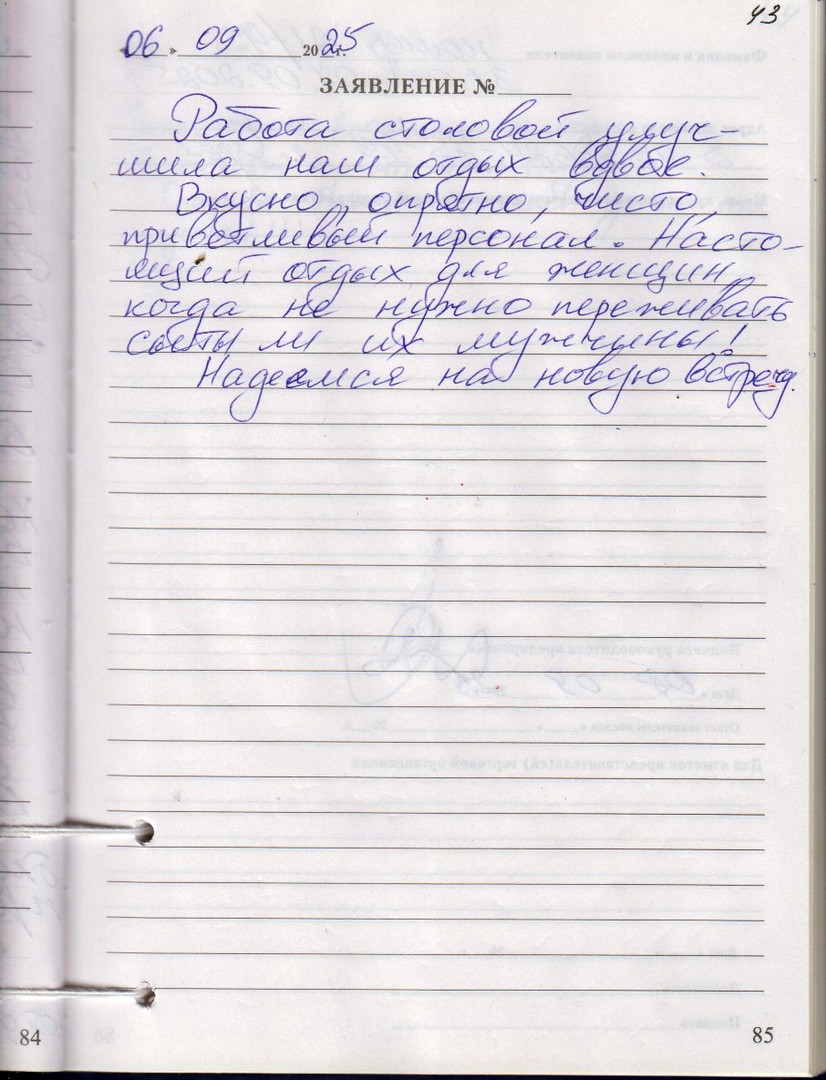 43
06 » 09 2025г.
ЗАЯВЛЕНИЕ №
Работа столовой улуч-
шила наш отдых вдвое.
Вкусно, опрятно, чисто,
приветливый персонал. Насто-
ящий отдых для женщин,
когда не нужно переживать
сыты ли их мужчины!
Надеемся на новую встречу.
84
85